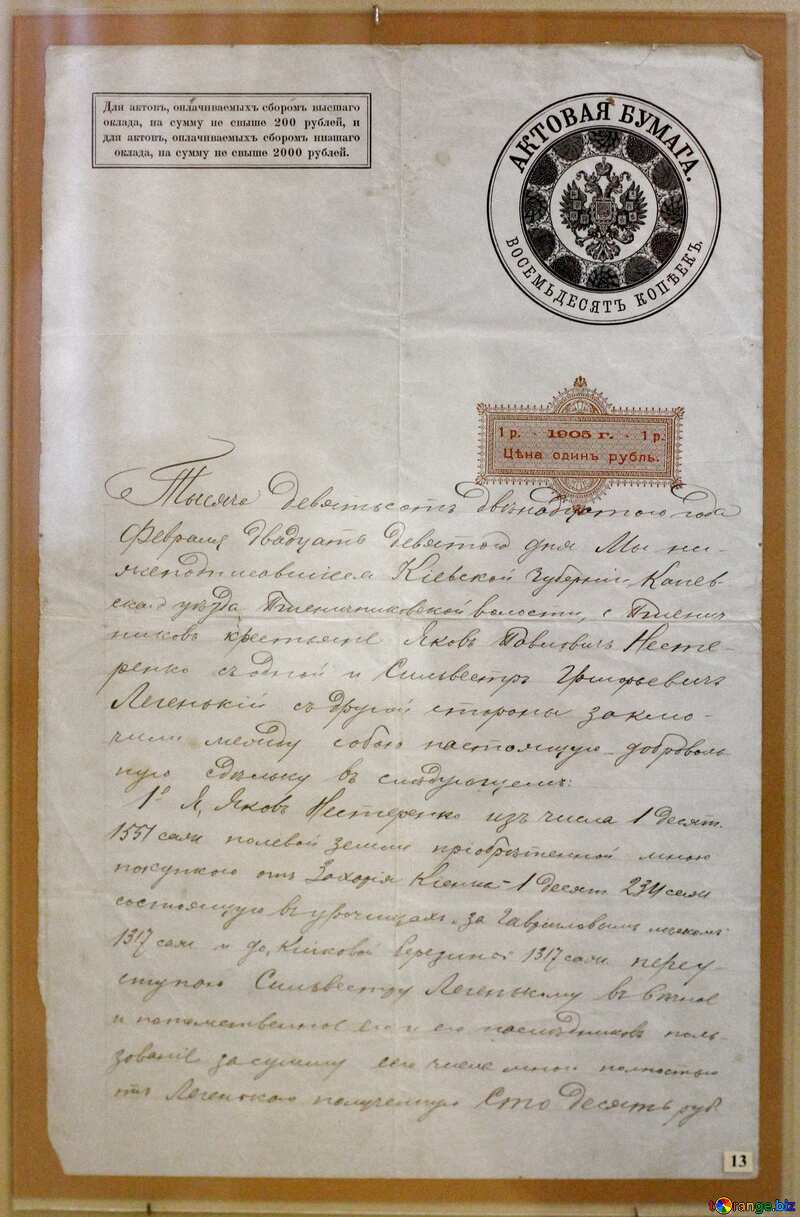 Для актовъ, оплачиваемыхъ сборомъ высшаго
оклада, на сумму не свыше 200 рублей, и
для актовъ, оплачиваемыхъ сборомъ низшаго
оклада, на сумму не свыше 2000 рублей.
АКТОВАЯ БУМАГА.
ВОСЕМЬДЕСЯТЪ КОПѢЕКЪ.
1 р. · 1905 г. · 1 р.
Цѣна одинъ рубль.
Тысяча девятьсотъ двѣнадцатого года
Февраля двадцать девятого дня Мы ни-
жеподписавшіеся Кіевской Губерніи Канев-
скаго уѣзда Пшеничниковской волости, с. Пшенич
никовъ крестьяне Яковъ Павловичъ Несте-
ренко съ одной и Сильвестръ Григорьевичъ
Легенькій съ другой стороны заклю-
чили между собою настоящую доброволь
ную сдѣлку въ слѣдующемъ:
1е Я, Яковъ Нестеренко изъ числа 1 десят.
1551 саж полевой земли приобрѣтенной мною
покупкою отъ 1 десят 234 саж
состоящую въ урочищахъ за Гавриловымъ
1317 саж и до 1317 саж переу-
ступаю Сильвестру Легенькому въ вѣчное
и потомственное его и его наслѣдниковъ поль-
зованіе за сумму мною полностью
отъ Легенького полученную Сто десять руб
13
torange.biz